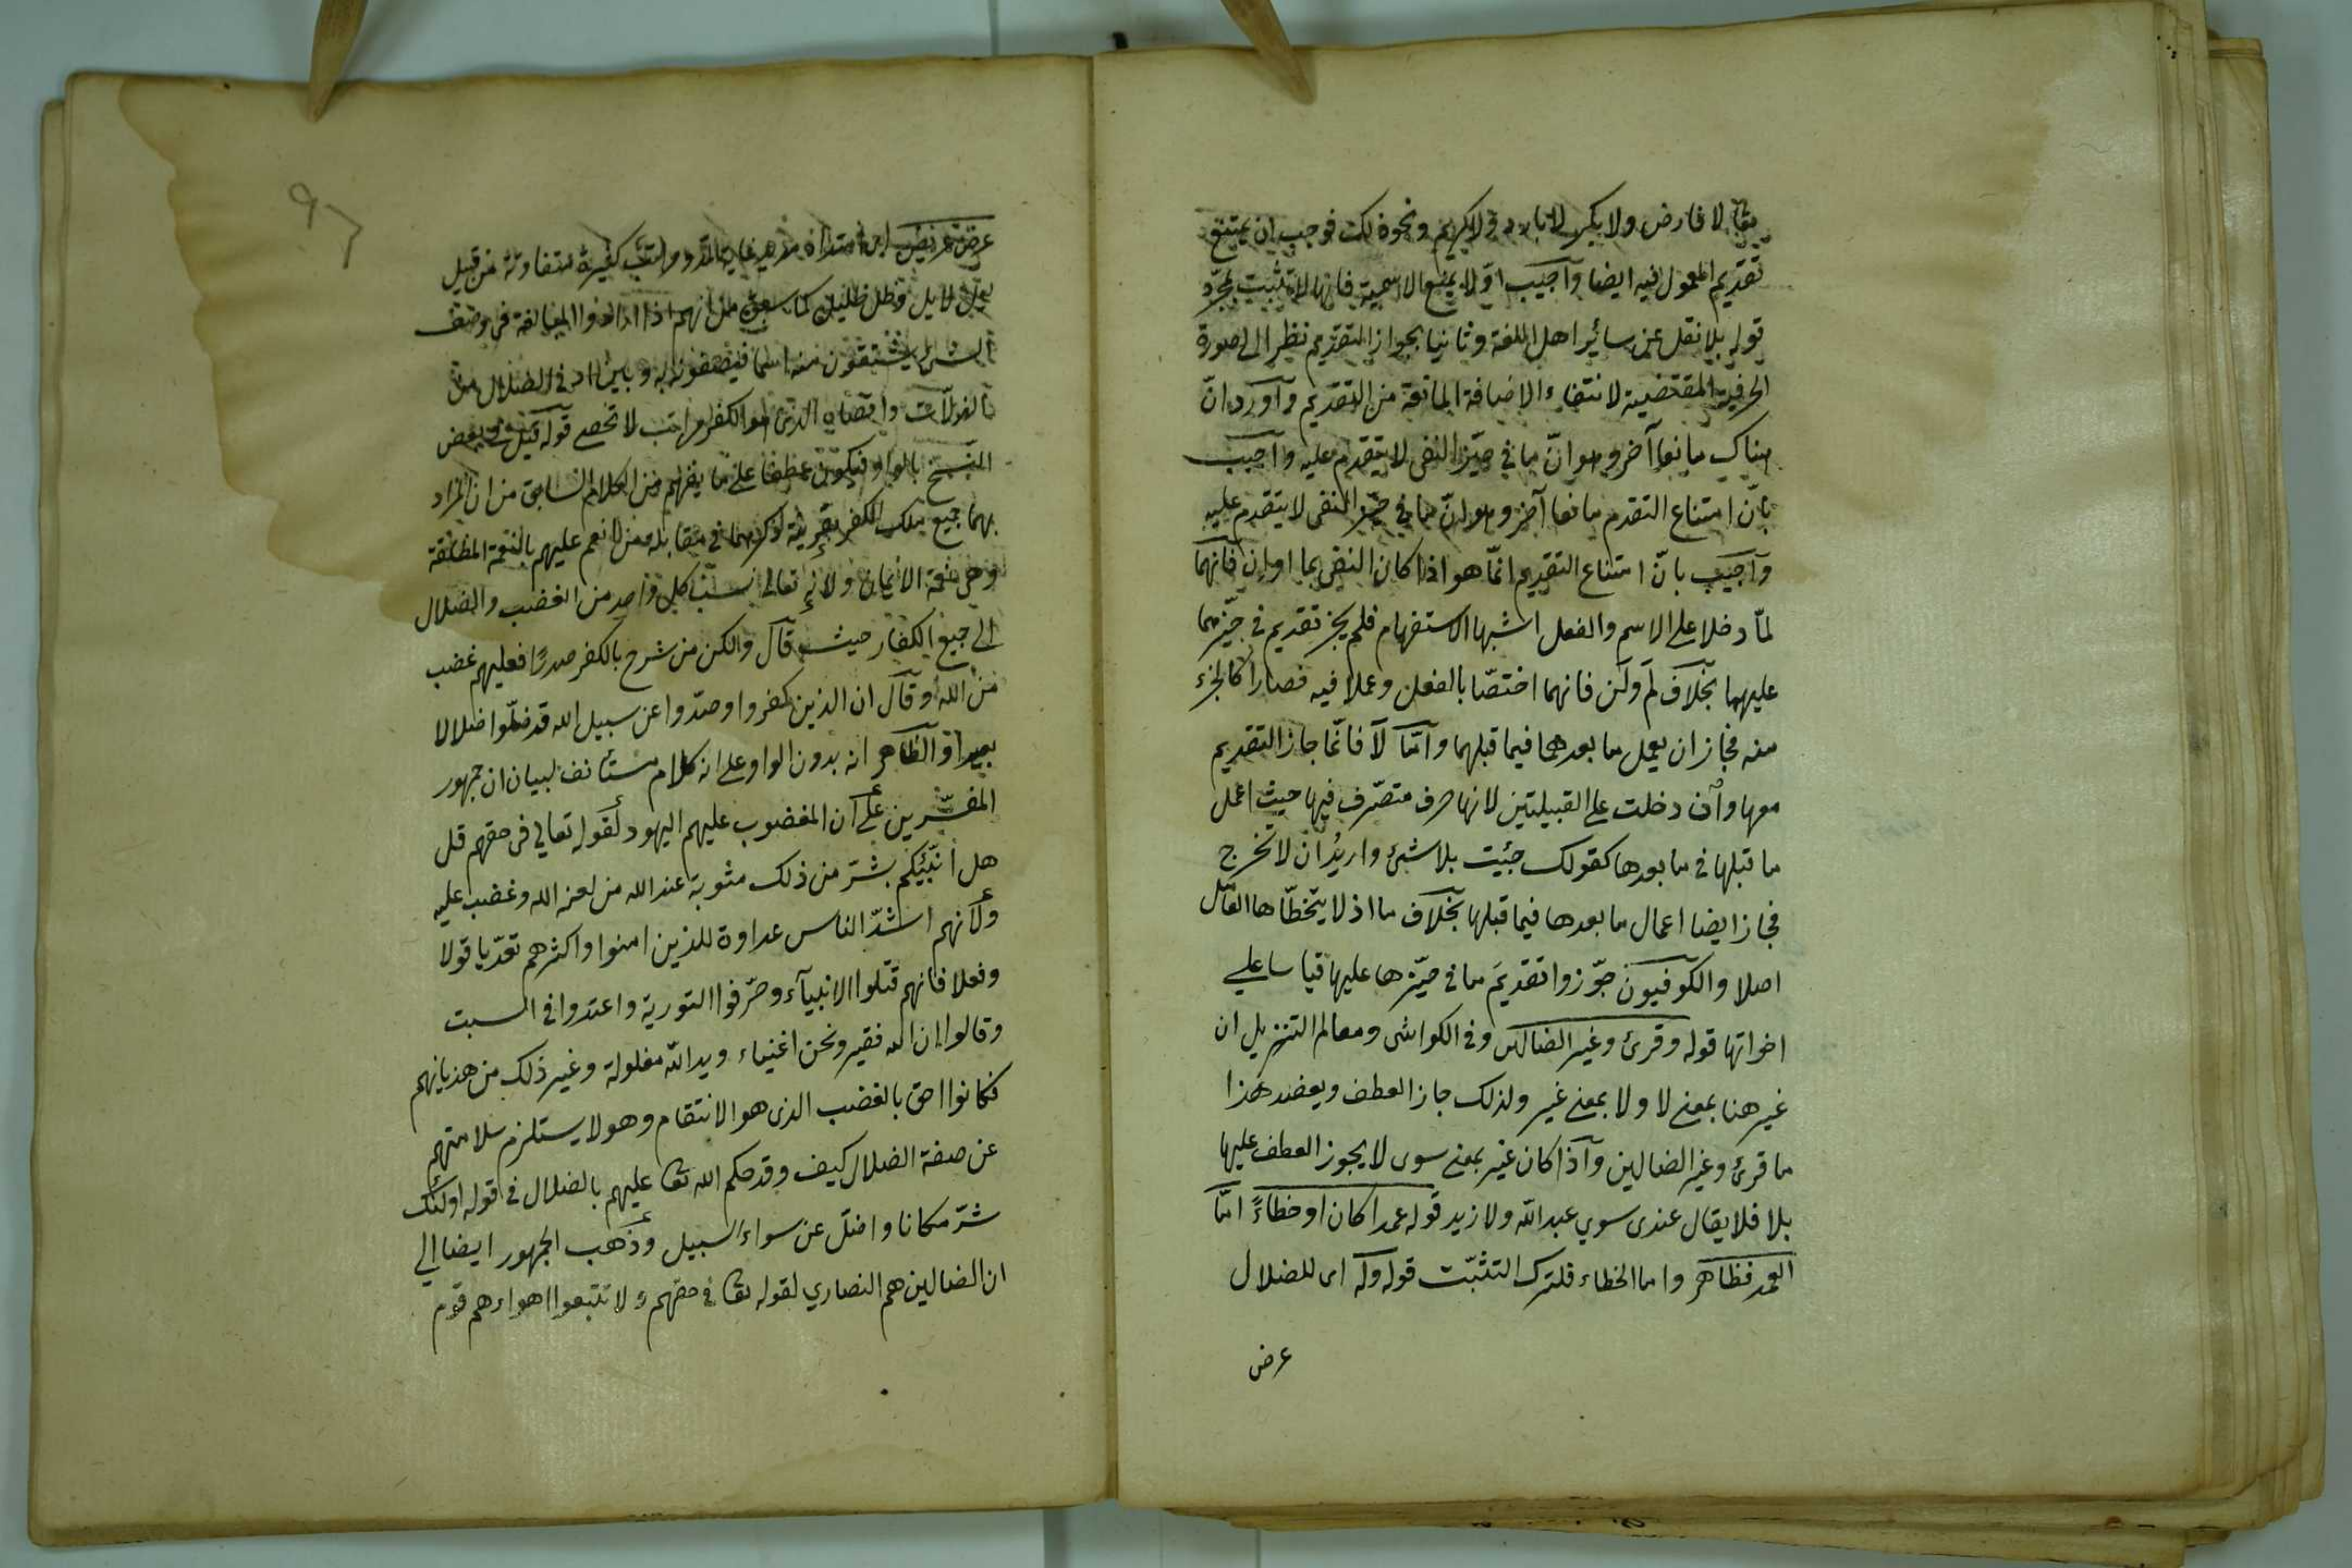 يقال لا فارض ولا بكر لا بارد ولا كريم ونحو ذلك فوجب ان يمتنع
تقديم المعمول فيه ايضا وآجيب اوّلا بمنع الاسمية فانها لا تثبت بمجرّد
قوله بلا نقل عن سائر اهل اللغة وثانيا بجواز التقديم نظرا الى صورة
الحرفية المقتضية لانتفاء الاضافة المانعة من التقديم وآورد انّ
هناك مانعا آخر وهو انّ ما في حيّز النفى لا يتقدم عليه وآجيب
بانّ امتناع التقدم مانعا آخر وهو انّ ما في حيّز النفى لا يتقدم عليه
وآجيب بانّ امتناع التقديم انّما هو اذا كان النفى بما او ان فانهما
لمّا دخلا على الاسم والفعل اشبها الاستفهام فلم يجز تقديم في حيّزهما
عليهما بخلاف لم ولن فانهما اختصّا بالفعل وعملا فيه فصارا كالجزء
منه فجاز ان يعمل ما بعدهما فيما قبلهما وامّا لا فانّما جاز التقديم
معها وآن دخلت على القبيلتين لانها حرف متصّرف فيها حيث اعمل
ما قبلها فى ما بعدها كقولك جئيت بلا شئ واريدُ ان لا تخرج
فجاز ايضا اعمال ما بعدها فيما قبلها بخلاف ما اذ لا يتخطّاها العامل
اصلا والكوفيون جوّزوا تقديمَ ما فى حيّزها عليها قياسا على
اخواتها قوله وقرئ وغير الضالين وفى الكواشى ومعالم التنزيل ان
غير هنا بمعنى لا ولا بمعنى غير ولذلك جاز العطف ويعضد هذا
ما قرئ وغير الضالين وآذا كان غير بمعنى سوى لا يجوز العطف عليها
بلا فلا يقال عندى سوي عبدالله ولا زيد قوله عمدا كان او خطاءً امّا
العمد فظاهر واما الخطاء فلترك التثبّت قوله وله اى للضلال
عرض
٩٦
عرض عريض اى امتداد مراتب كثيرة متفاوتة من قبيل
ليل لا يل وظل ظليل كما سبق من انهم اذا ارادوا المبالغة فى وصف
الشئ يشتقون منه اسما فيصفونه به وبين ادنى الضلال من
الزلات واقصاه الذى هو الكفر مراتب لا تحصى قوله قيل فى بعض
النسخ بالواو فيكون عطفا على ما يفهم من الكلام السابق من ان المراد
بهما جميع ملل الكفر بقرينة ذكرهما فى مقابلة من انعم عليهم بالنعمة المطلقة
وهى نعمة الايمان ولانه تعالى نسب كل واحد من الغضب والضلال
الى جميع الكفار حيث قال ولكن من شرح بالكفر صدرًا فعليهم غضب
من الله وقال ان الذين كفروا وصدّوا عن سبيل الله قد ضلّوا ضلالا
بعيدا والظاهر انه بدون الواو على انه كلام مستأنف لبيان ان جمهور
المفسّرين على ان المغضوب عليهم اليهود لقوله تعالي فى حقهم قل
هل انبّئكم بشرّ من ذلك مثوبة عند الله من لعنه الله وغضب عليه
ولانهم اشدّ الناس عداوة للذين امنوا واكثرهم تعدّيا قولا
وفعلا فانهم قتلوا الانبيآء وحرّفوا التورية واعتدوا فى السبت
وقالوا ان الله فقير ونحن اغنياء ويد الله مغلولة وغير ذلك من هذيانهم
فكانوا احق بالغضب الذى هو الانتقام وهو لا يستلزم سلامتهم
عن صفة الضلال كيف وقد حكم الله تعا عليهم بالضلال فى قوله اولئك
شرّ مكانا واضلّ عن سواء السبيل وذهب الجمهور ايضا الي
ان الضالين هم النصاري لقوله تعا فى حقهم ولا تتبعوا اهواءهم قوم